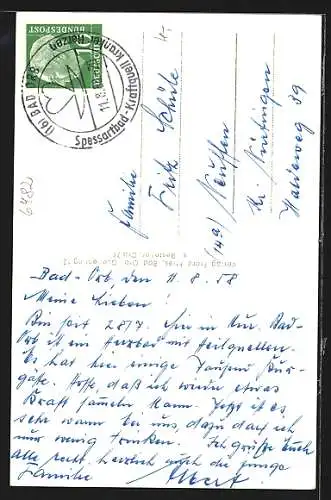 DEUTSCHE BUNDESPOST
(16) BAD ORB
11.8.
Spessartbad - Kraftquell kranker Herzen
6482
Familie
Fritz Schüle
(14a) Neuffen
Kr. Nürtingen
39
Bad-Orb, den 11.8.58
Meine Lieben!
Bin seit 28/7. hier in Kur. Bad-
Orb ist ein Herzbad mit Heilquellen.
Es hat hier einige Tausend Kur-
gäste. Hoffe, daß ich wieder etwas
Kraft sammeln kann. Jetzt ist es
sehr warm bei uns, dazu darf ich
nur wenig trinken. Ich grüße Euch
alle recht herzlich auch die junge
Familie Albert